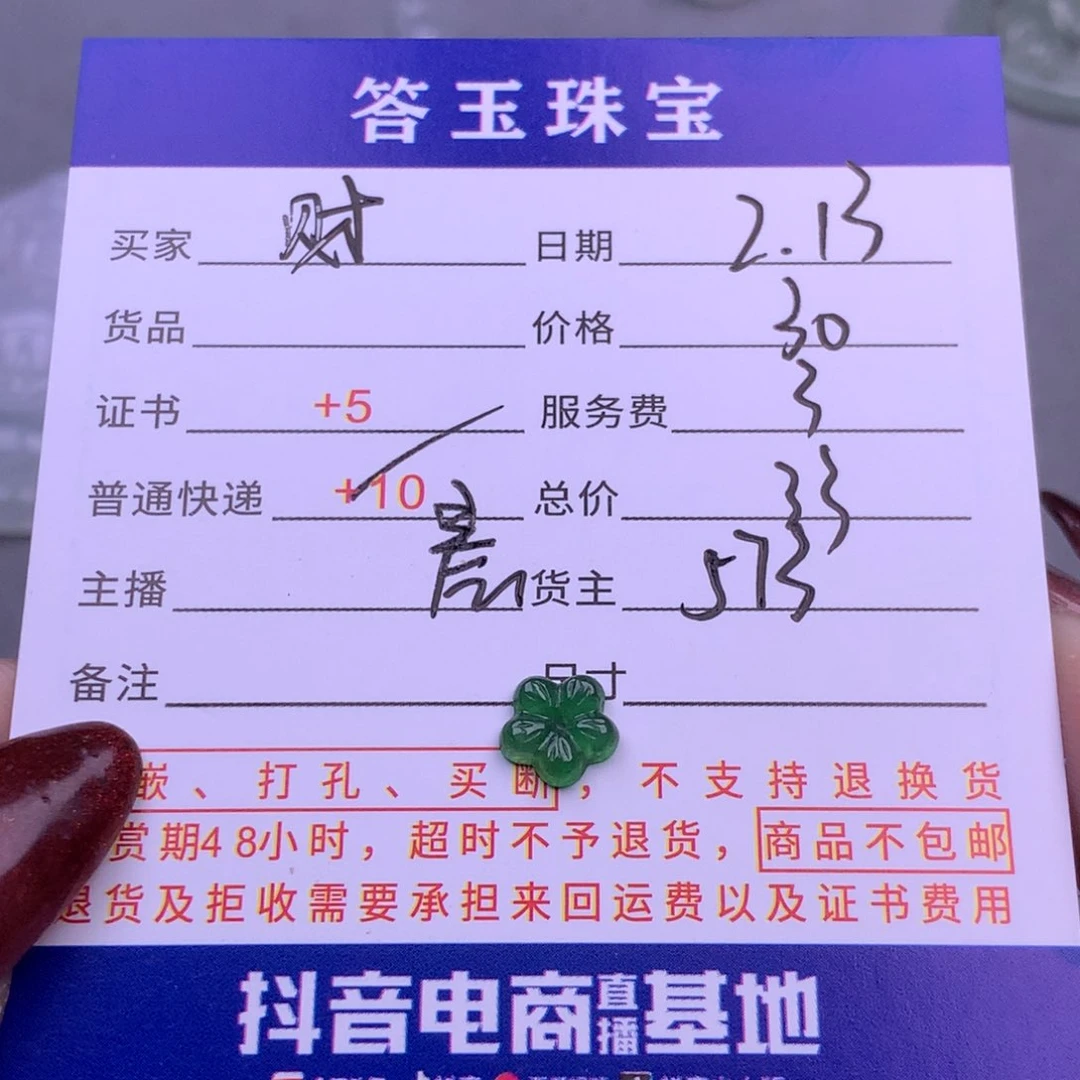 答玉珠宝
买家 财 日期 2.13
货品 价格 30
证书 +5 服务费 3
普通快递 +10 总价 33
主播 货主 573
备注 尺寸
嵌、打孔、买断，不支持退换货
赏期48小时，超时不予退货，商品不包邮
退货及拒收需要承担来回运费以及证书费用
抖音电商直播基地